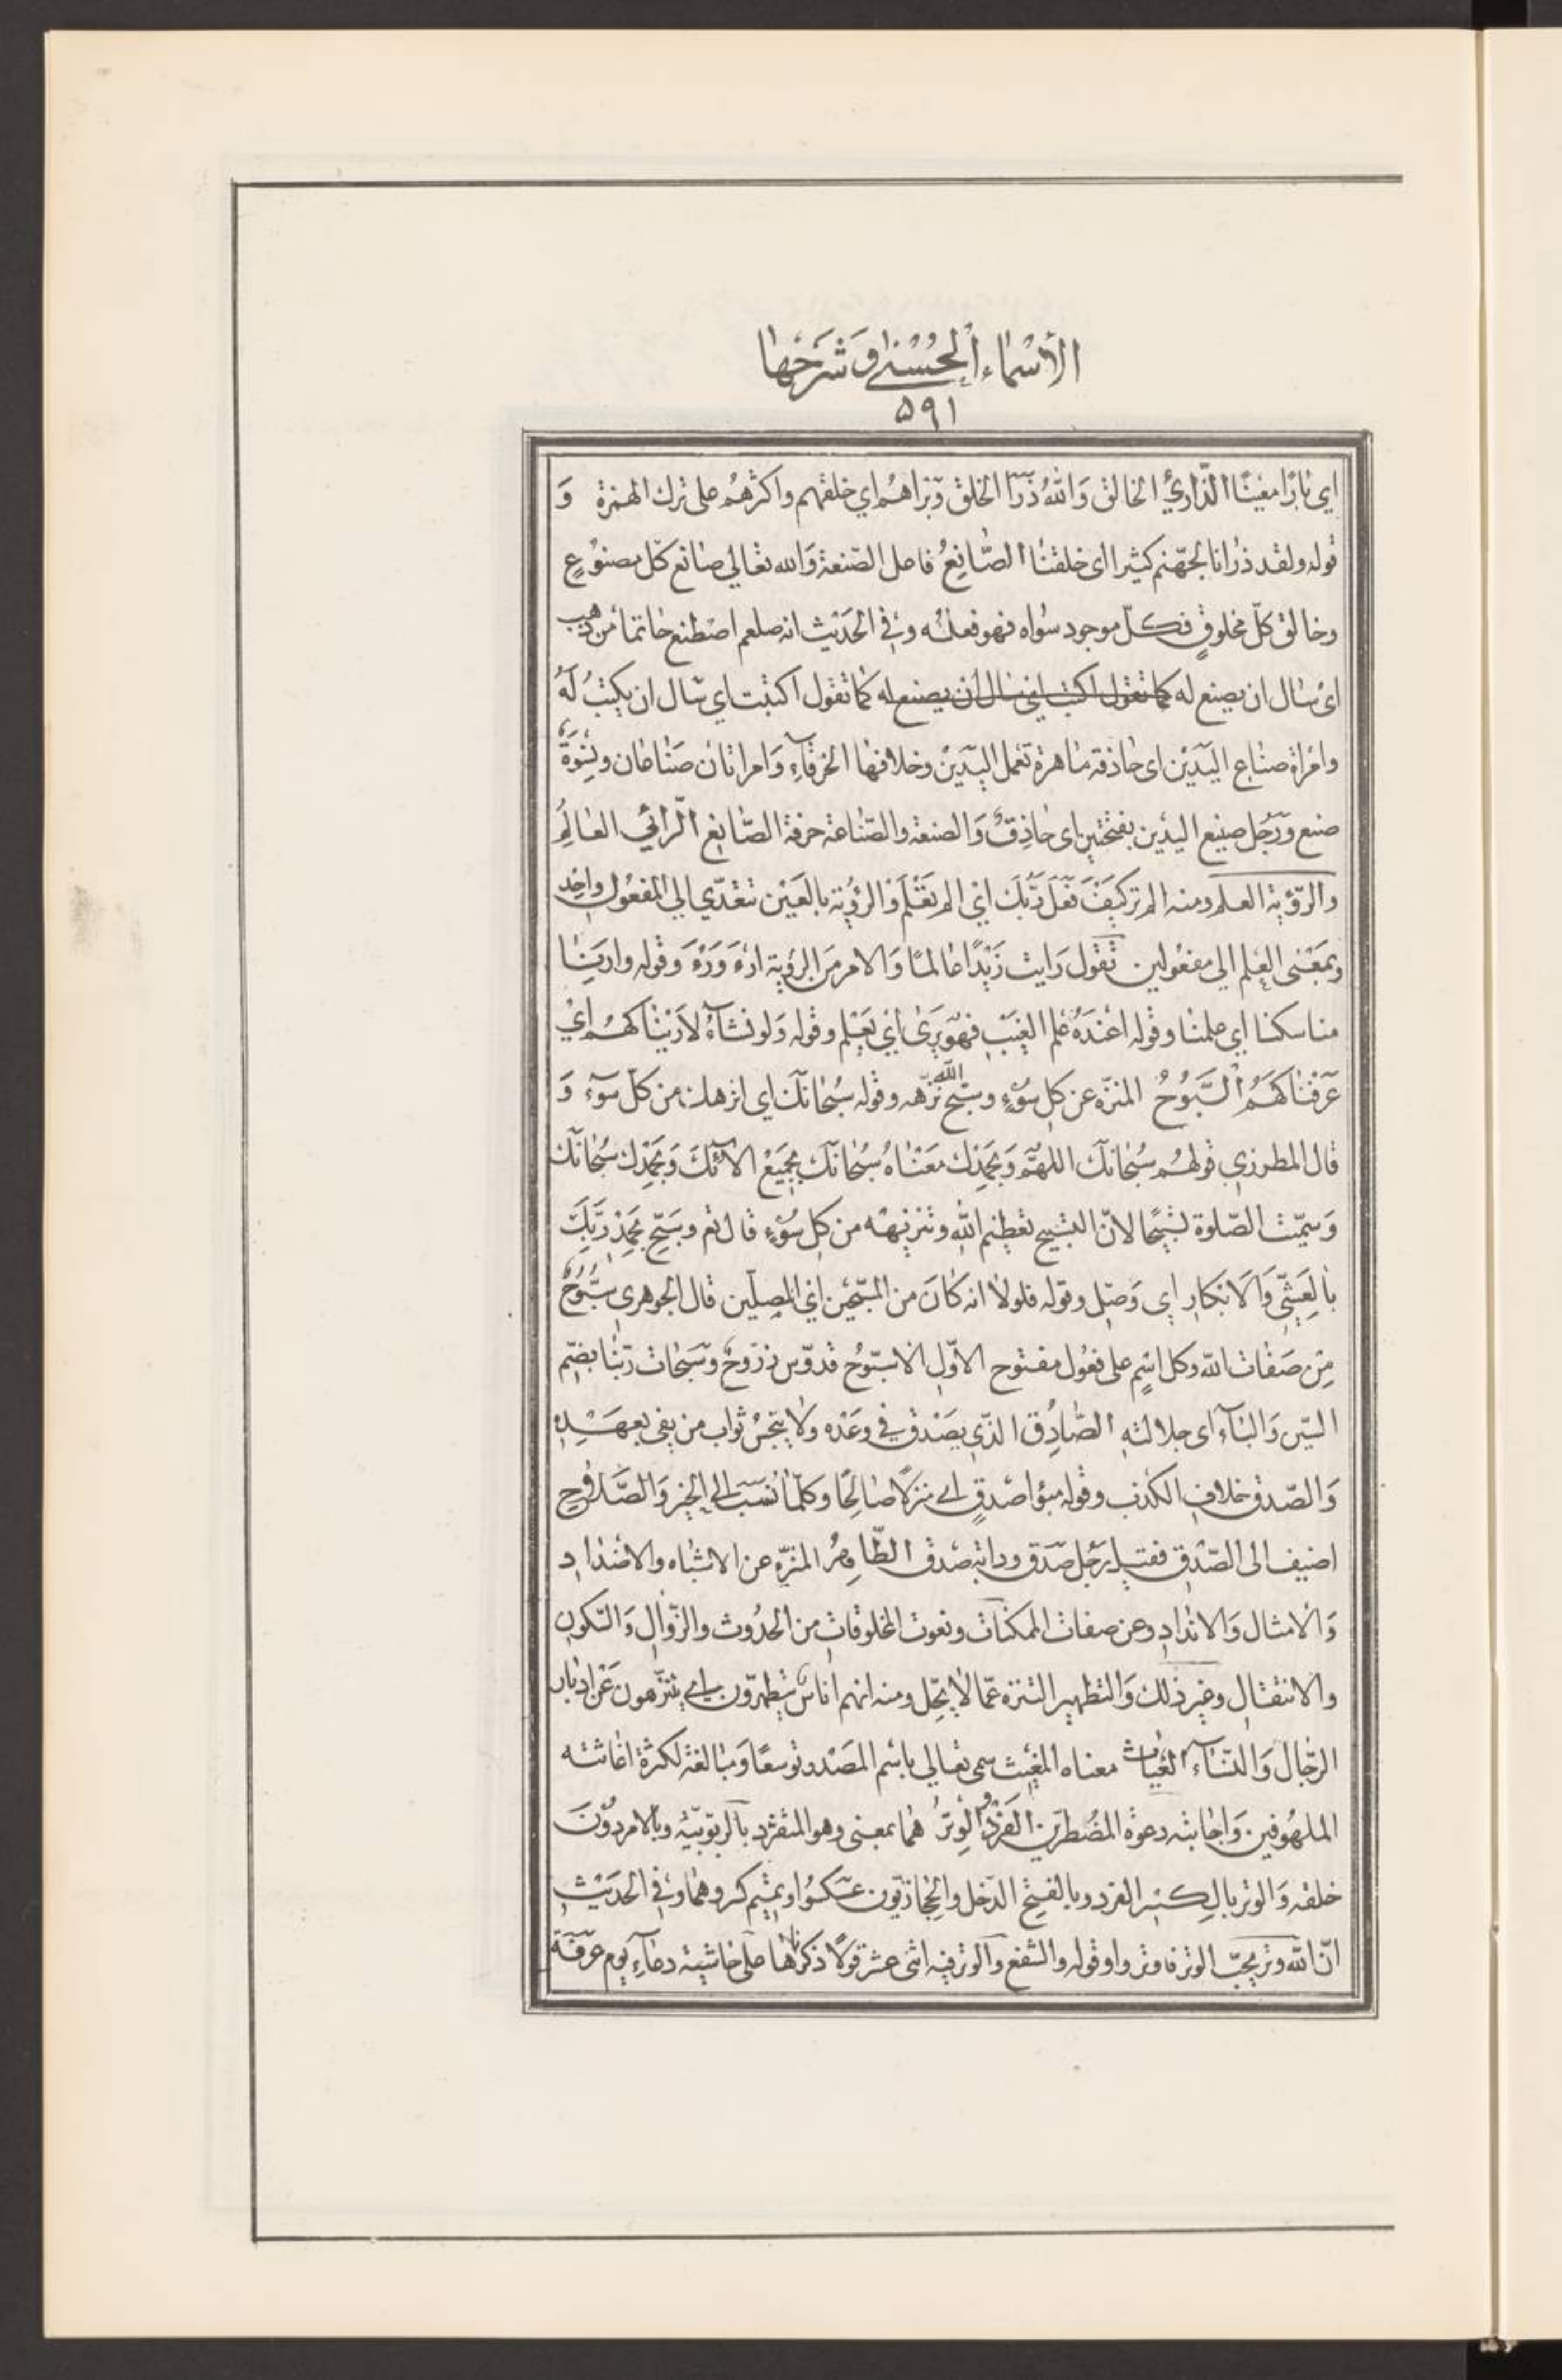 الأَسْمَاءُ الْحُسْنَى وَشَرْحُهَا
۵۹۱
اي بارّا معينًا الذّارئُ الخالق وَاللهُ ذَرَأَ الخلق وَبَراهُم اي خلقهم واكثرهُم على ترك الهمزة وَ
قوله ولقد ذرانا لجهّنم كثيرا اى خلقنا الصّانِعُ فاعل الصّنعة وَالله تعالى صانع كلّ مصنوُعٍ
وخالق كلّ مخلوقٍ فكلّ موجود سواه فهو فعله وفى الحَديْث انه صلعم اصْطنع خاتما من ذهب
اى سال ان يصنع له كما تقول اكتب اي سال ان يصنع له كما تقول اكتتبت اي سال ان يكتبُ لَهُ
وامْراة صناع اليَدَيْن اى حاذقة ماهرة بعمل اليَدَيْن وخلافها الخرقاءِ وَامراتان صَناعان ونِسْوَةٌ
صنع ورَجُل صنيع اليدين بفتحتين اى حاذِقٌ وَالصنعة والصّناعة حرفة الصّانِع الرّائي العالِمُ
والرّؤية العلم ومنه الم تر كيَفَ فَعَلَ رَبُّكَ اي الم تَعْلَم وَالرؤية بالعَيْن تتعَدّي الى المفعُول واحِدٍ
وبمَعْنى العِلم الى مفعُولين تقول رَايت زَيْدًا عالمًا وَالامر مَن الرؤية ارْءَ وَرَهْ وَقوله وارَنا
مناسكنا اي علمنا وقوله اعْندَهُ علم الغيَبْ فهوَ يَرى اي يَعْلم وقوله وَلو نشآءُ لاَرَيْناكهُم ايْ
عَرّفناكهَمُ السَّبُوحُ المنزّه عن كل سُوْءٍ وسبّح الله نزّهه وقوله سُبْحانَك اى انزهك من كل سوَء وَ
قال المطرزى قولهُم سُبْحانكَ اللهمّ وَبحَمْدِك مَعْناهُ سُبْحانك بجَميعْ الآئكَ وَبحَمْدِك سُبْحانَك
وَسمّيت الصّلوة تسْبيحًا لانّ التسبيح تعظيم الله وتنزيهه من كل سُوْءٍ قال تع وسَبّح بحَمْدِ رَبِّكَ
بالعَشِّي وَالابكار اي وَصّل وقوله فلولا انه كانَ من المسبّحين اي المصلّين قال الجوهرى سبُّوحٌ
مِن صَفات الله وكل اسْمٍ على فعُول مفتوح الاوّل الا سبّوُح قدوّس ذرّوحٌ وسَبحات ربّنا بضّم
السّين وَالباءِ اى جلالته الصّادِقُ الذّي يصَدق في وعَدْه ولا يبخسُ ثواب من يفى بعهَدِه
وَالصّدق خلاف الكذب وقوله مبؤا صدقٍ اى منزلاً صالحًا وكلّما نسَب الى الخير وَالصَّلاح
اضيف الى الصّدق فقيل رَجل صَدق ودابّة صدق الطّاهِرُ المنزّه عن الاشباه والاضداد
وَالامثال وَالانداد وعن صفات الممكنات ونعوت المخلوقات من الحدُوث والزّوال وَالسّكون
والانتقال وغير ذلك وَالتطهير التنزه عمّا لا يحِلّ ومنه انهم اناسٌ يتطهرّون اى يتنزّهون عَن ادبار
الرّجال وَالنّساء الغياث معناه المغيْث سمى تعالى باسْم المصَدر توسعًا وَمبالغة لكثرة اغاثته
الملهُوفين وَاجابته دعوة المضُطرّين الفَرْدُ وَالوِترُ هما بمعنى وهو المتفرّد بالربوبيّة وبالامر دوُنَ
خلقه وَالوتر بالكسْر الفرد وبالفتح الدّخل والحِجازيّون عكسُوا وتميْم كسروهما وفى الحديْث
انّ الله وتر يحِبّ الوتر فاوتروا وقوله والشفع وَالوتر فيه اثنى عشر قولاً ذكرناها على حاشية دعآءِ يوم عرَفة